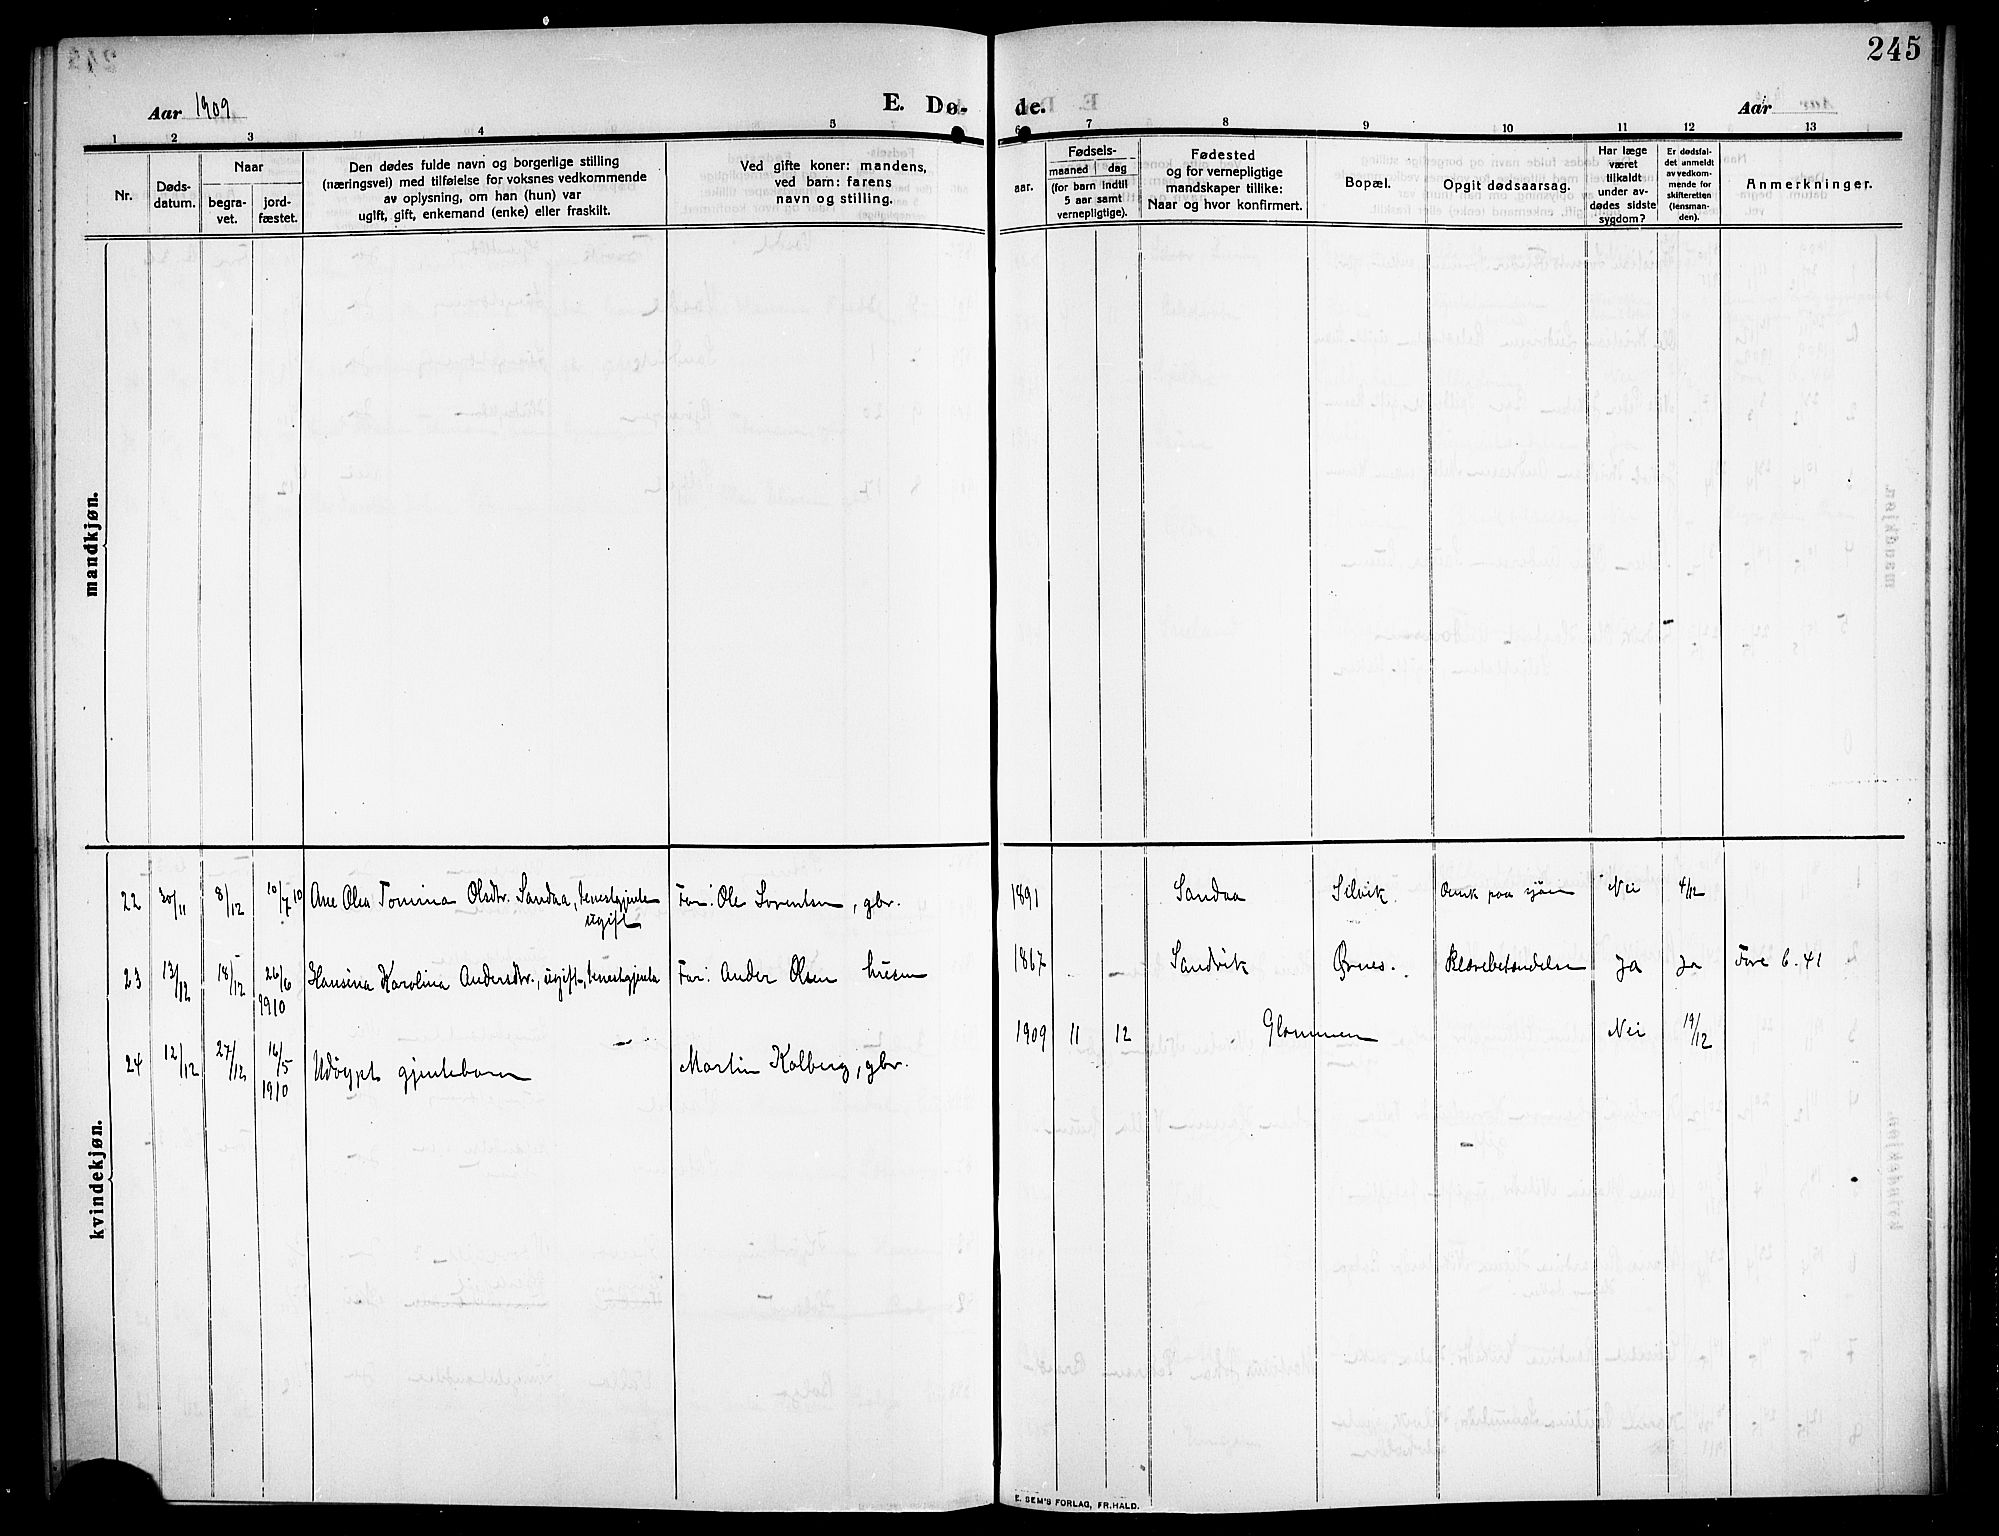 245
Aar 1909
E. Dø-
de.
Aar
1 2 3 4 5 6 7 8 9 10 11 12 13
Nr.
Døds-
datum.
Naar
begra-
vet.
jord-
fæstet.
Den dødes fulde navn og borgerlige stilling
(næringsvei) med tilføielse for voksnes vedkommende
av oplysning, om han (hun) var
ugift, gift, enkemand (enke) eller fraskilt.
Ved gifte koner: mandens,
ved barn: farens
navn og stilling.
Fødsels-
aar.
maaned dag
(for barn indtil
5 aar samt
vernepligtige).
Fødested
og for vernepligtige
mandskaper tillike:
Naar og hvor konfirmert.
Bopæl.
Opgit dødsaarsag.
Har læge
været
tilkaldt
under av-
dødes sidste
sygdom?
Er dødsfal-
det anmeldt
av vedkom-
mende for
skifteretten
(lensman-
den).
Anmerkninger.
mandkjøn.
kvindekjøn.
22 30/11 8/12 10/7 10 Ane Olea Tomina Olsdtr. Sandaa, tenestgjente Far: Ole Lorentsen, gbr. 1891 Sandaa Selvik. Druk. paa sjøen Nei 4/12
ugift
23 13/12 18/12 26/6 Hansina Karolina Andersdtr., ugift, tenestgjente Far: Ander Olsen husm 1867 - - Sandvik Ørnes. Blærebetændelse Ja Ja Fore b. 41
1910
24 12/12 27/12 16/5 Udøypt gjentebarn Martin Kolberg, gbr. 1909 11 12 Glommen Nei 19/12
1910
E. SEM'S FORLAG, FR.HALD.